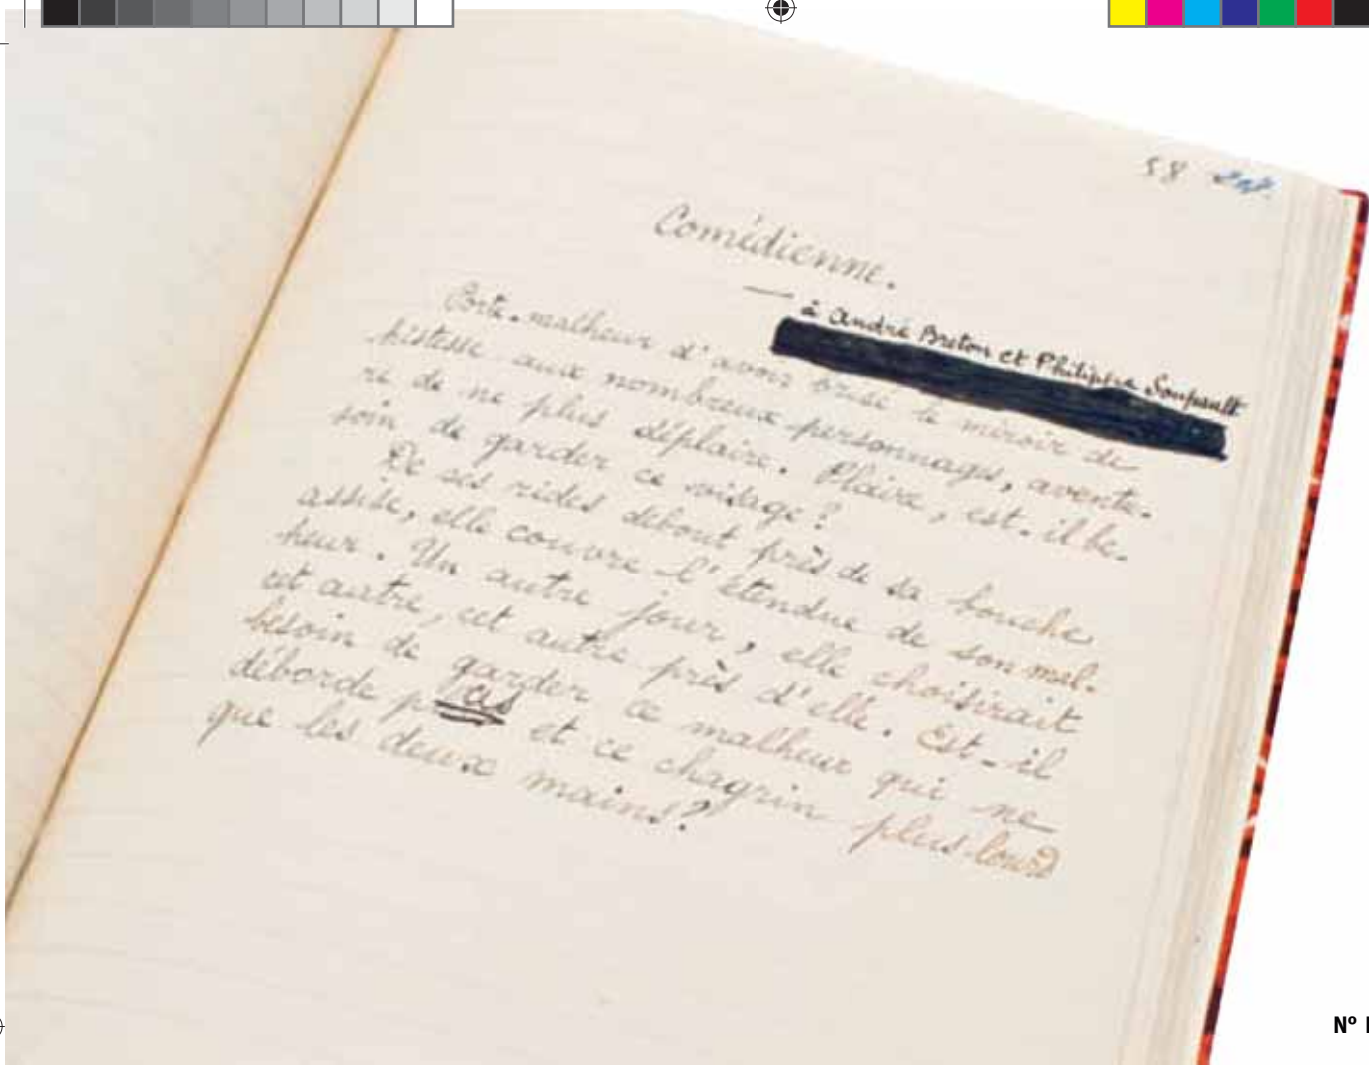 58
Comédienne.
à André Breton et Philippe Soupault
Porte-malheur d'avoir brisé le miroir de
tristesse aux nombreux personnages, avertu-
ri de ne plus déplaire. Plaire, est-il be-
soin de garder ce visage?
De ses rides debout près de sa bouche
assise, elle couvre l'étendue de son mal-
heur. Un autre jour, elle choisirait
cet autre, cet autre près d'elle. Est-il
besoin de garder ce malheur qui ne
déborde pas et ce chagrin plus lourd
que les deux mains?
Nº